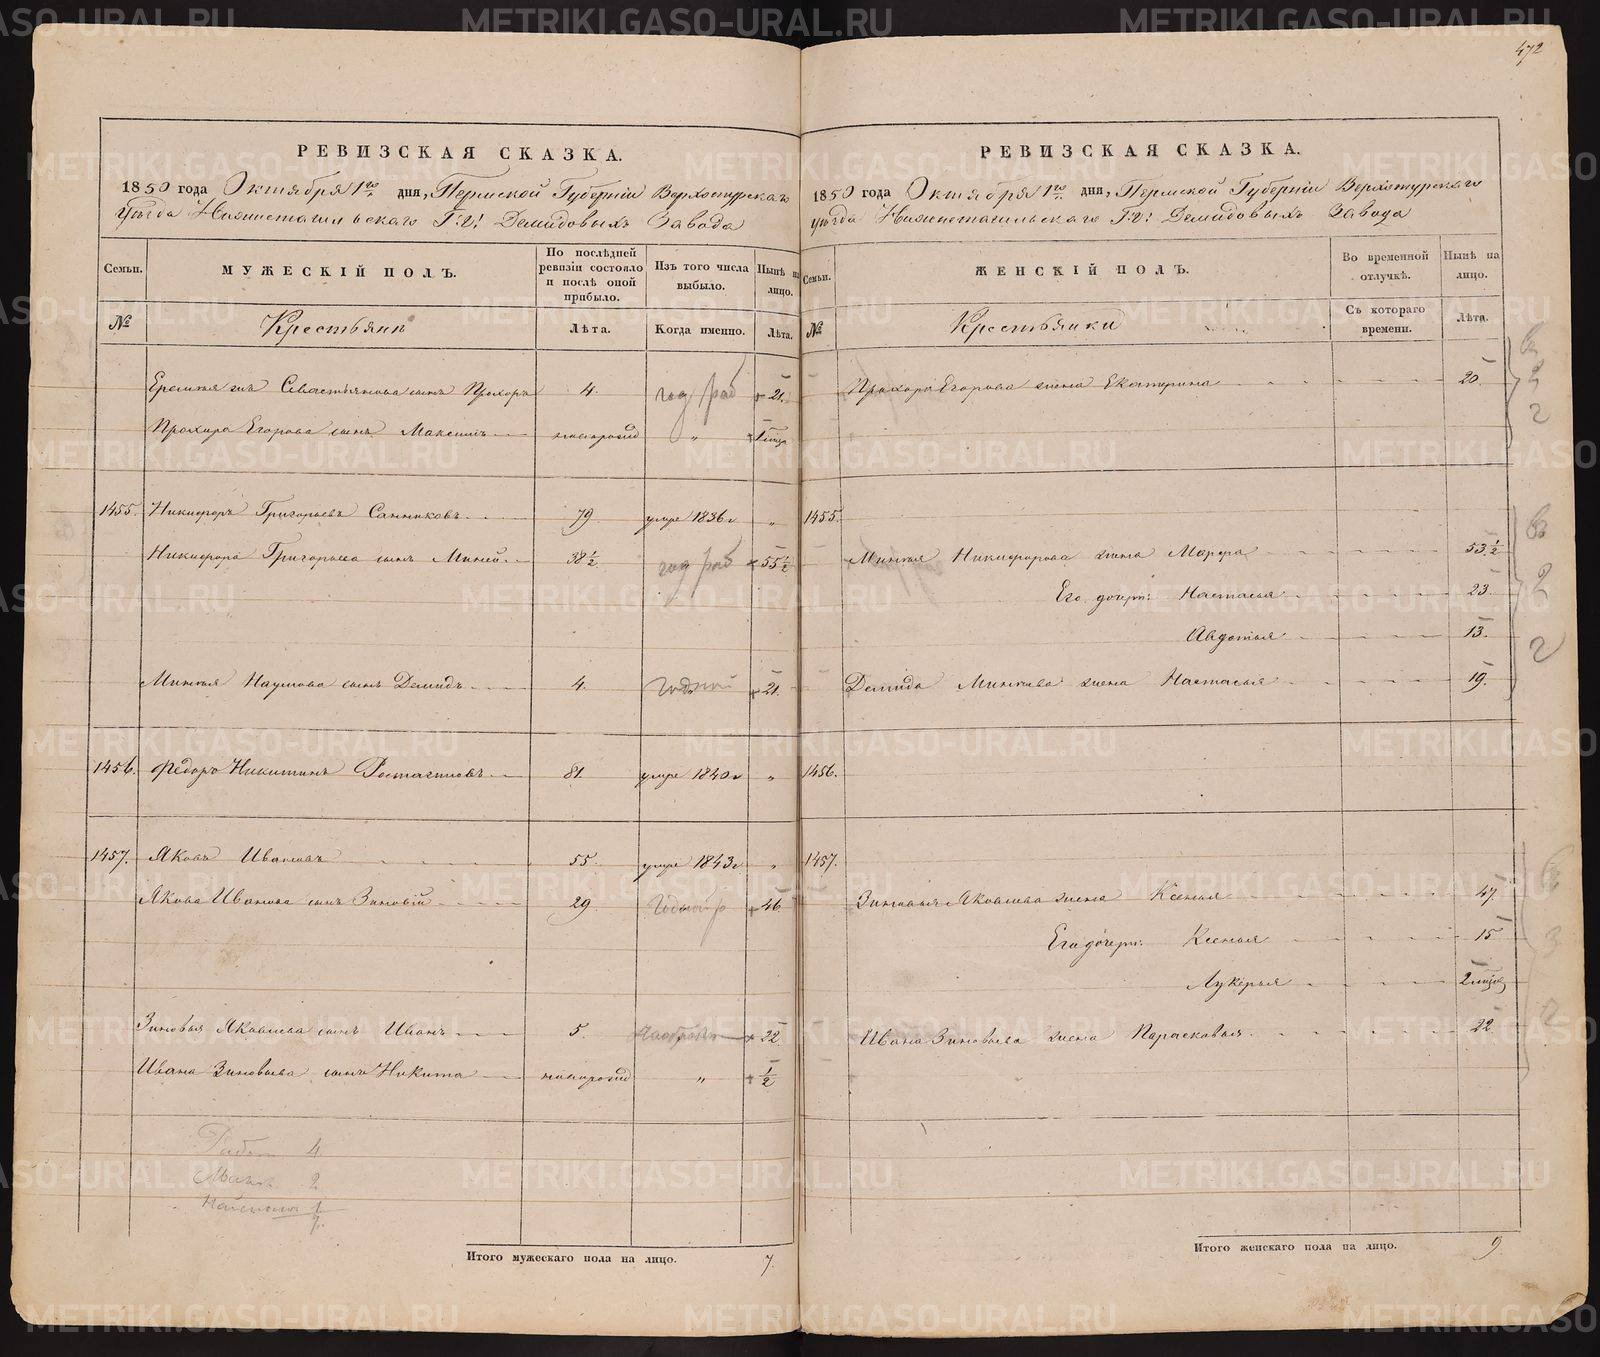 472
РЕВИЗСКАЯ СКАЗКА.
1850 года Октября 1го дня, Пермской Губерніи Верхотурскаго
уѣзда Нижнетагильскаго Г.г. Демидовыхъ Завода
Семьи. МУЖЕСКІЙ ПОЛЪ. По послѣдней ревизіи состояло и послѣ оной прибыло. Изъ того числа выбыло. Нынѣ на лицо.
№ Крестьяне Лѣта. Когда именно. Лѣта.
Севастьянова сынъ Прохоръ 4. год раб 21.
Прохора Егорова сынъ Максимъ новорожд „ 1
1455. Никифоръ Григорьевъ Санниковъ 79 умре 1836 г „
Никифора Григорьева сынъ Миней 38 1/2 год раб 55 1/2
Минея Наумова сынъ Демидъ 4. Годной 21.
1456. Федоръ Никитинъ 81. умре 1840 г „
1457. Яковъ Ивановъ 55. умре 1843 г „
Якова Иванова сынъ Зиновій 29 Годной р 46
Зиновья Яковлева сынъ Иванъ 5. 22
Ивана Зиновьева сынъ Никита новорожд „ 1/2
Работ 4
2
1
7.
Итого мужескаго пола на лицо. 7.
РЕВИЗСКАЯ СКАЗКА.
1850 года Октября 1го дня, Пермской Губерніи Верхотурскаго
уѣзда Нижнетагильскаго Г.г. Демидовыхъ Завода
Семьи. ЖЕНСКІЙ ПОЛЪ. Во временной отлучкѣ. Нынѣ на лицо.
№ Крестьянки Съ котораго времени. Лѣта.
Прохора Егорова жена Екатерина 20.
1455.
Минея Никифорова жена Марфа 53 1/2
Его дочери: Настасья 23
Авдотья 13.
Демида Минеева жена Настасья 19.
1456.
1457.
Зиновья Яковлева жена Ксенья 47
Его дочери: Ксенья 15
Лукерья 2
Ивана Зиновьева жена Парасковья 22
Итого женскаго пола на лицо. 9.
METRIKI.GASO-URAL.RU